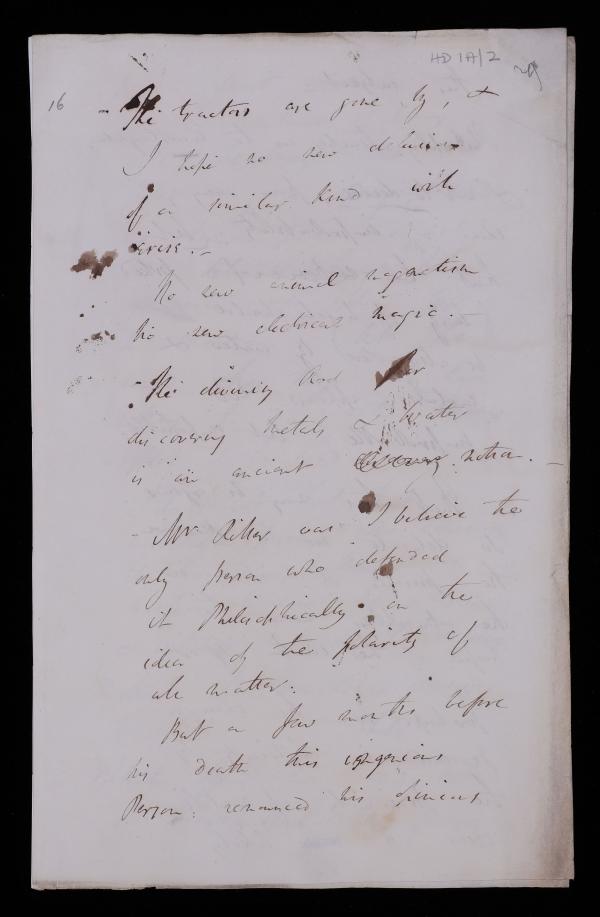 HD 1A/2
29
16
- The tractors are gone by, &
I hope no new delusion
of a similar kind will
arise. -
No new animal magnetism
No new electrical magic. -
- The divining Rod for
discovering metals & water
is an ancient notion. -
- Mr. Ritter was I believe the
only person who defended
it Philosophically on the
idea of the polarity of
all matter.
But a few months before
his death this ingenious
Person renounced his opinions